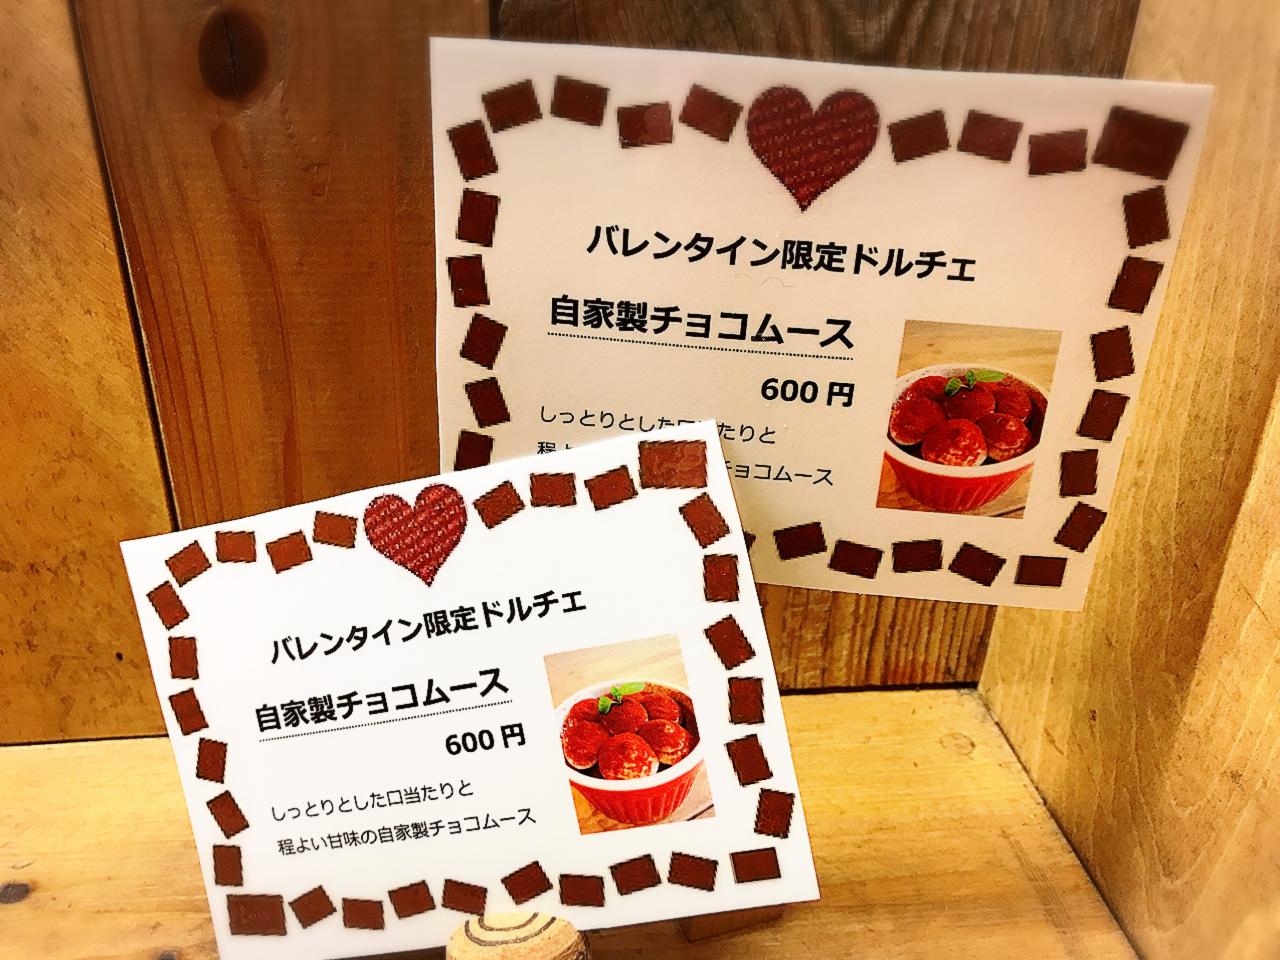 バレンタイン限定ドルチェ
自家製チョコムース
600円
しっとりとした口当たりと
程よ
チョコムース
バレンタイン限定ドルチェ
自家製チョコムース
600円
しっとりとした口当たりと
程よい甘味の自家製チョコムース